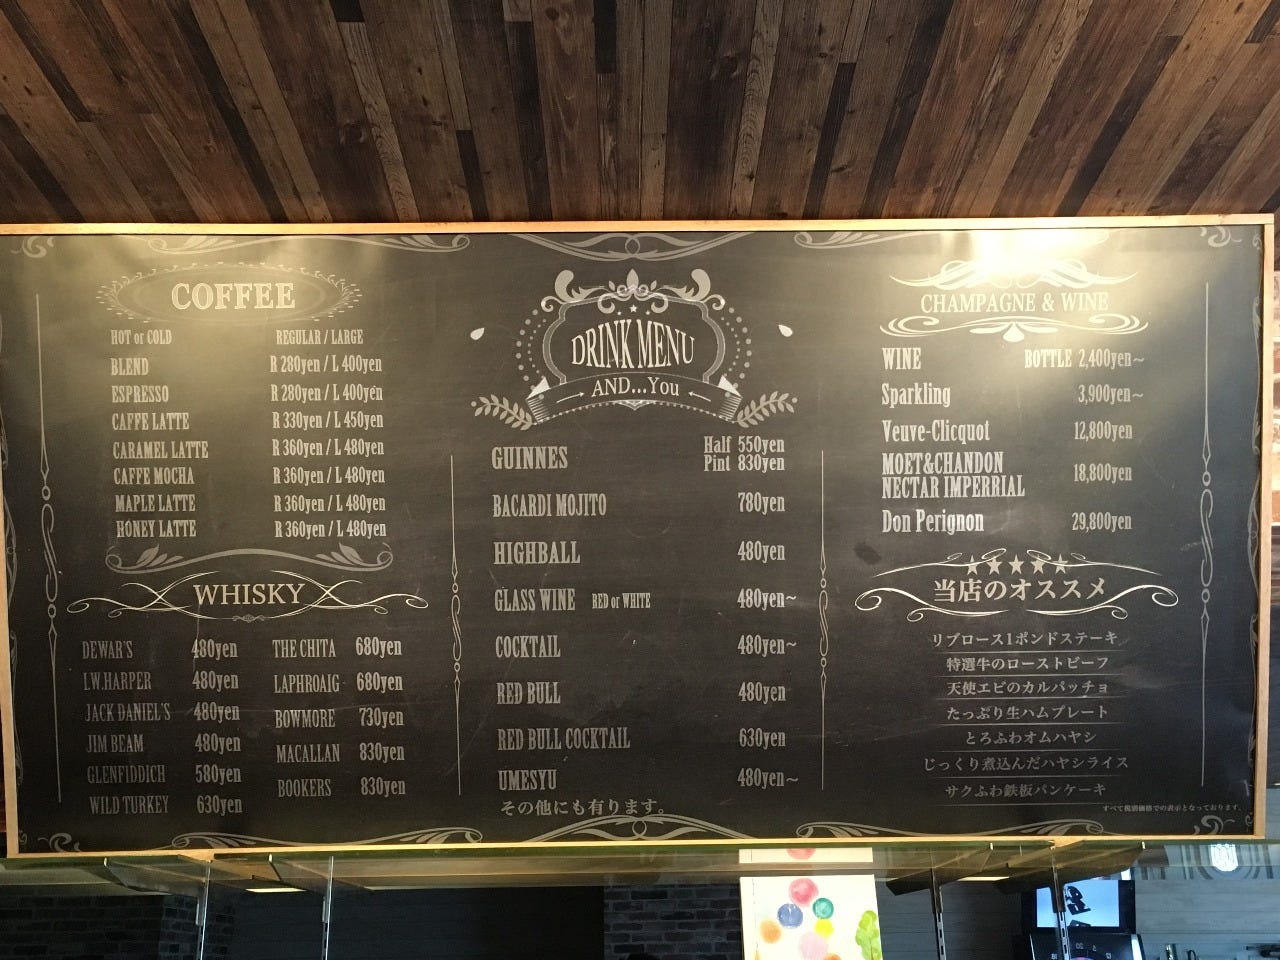 COFFEE
HOT or COLD REGULAR / LARGE
BLEND R 280yen / L 400yen
ESPRESSO R 280yen / L 400yen
CAFFE LATTE R 330yen / L 450yen
CARAMEL LATTE R 360yen / L 480yen
CAFFE MOCHA R 360yen / L 480yen
MAPLE LATTE R 360yen / L 480yen
HONEY LATTE R 360yen / L 480yen
WHISKY
DEWAR'S 480yen
I.W.HARPER 480yen
JACK DANIEL'S 480yen
JIM BEAM 480yen
GLENFIDDICH 580yen
WILD TURKEY 630yen
THE CHITA 680yen
LAPHROAIG 680yen
BOWMORE 730yen
MACALLAN 830yen
BOOKERS 830yen
DRINK MENU
AND...You
GUINNES Half 550yen
Pint 830yen
BACARDI MOJITO 780yen
HIGHBALL 480yen
GLASS WINE RED or WHITE 480yen~
COCKTAIL 480yen~
RED BULL 480yen
RED BULL COCKTAIL 630yen
UMESYU 480yen~
その他にも有ります。
CHAMPAGNE & WINE
WINE BOTTLE 2,400yen~
Sparkling 3,900yen~
Veuve-Clicquot 12,800yen
MOET&CHANDON
NECTAR IMPERRIAL 18,800yen
Don Perignon 29,800yen
当店のオススメ
リブロース1ポンドステーキ
特選牛のローストビーフ
天使エビのカルパッチョ
たっぷり生ハムプレート
とろふわオムハヤシ
じっくり煮込んだハヤシライス
サクふわ鉄板パンケーキ
すべて税別価格での表示となっております。